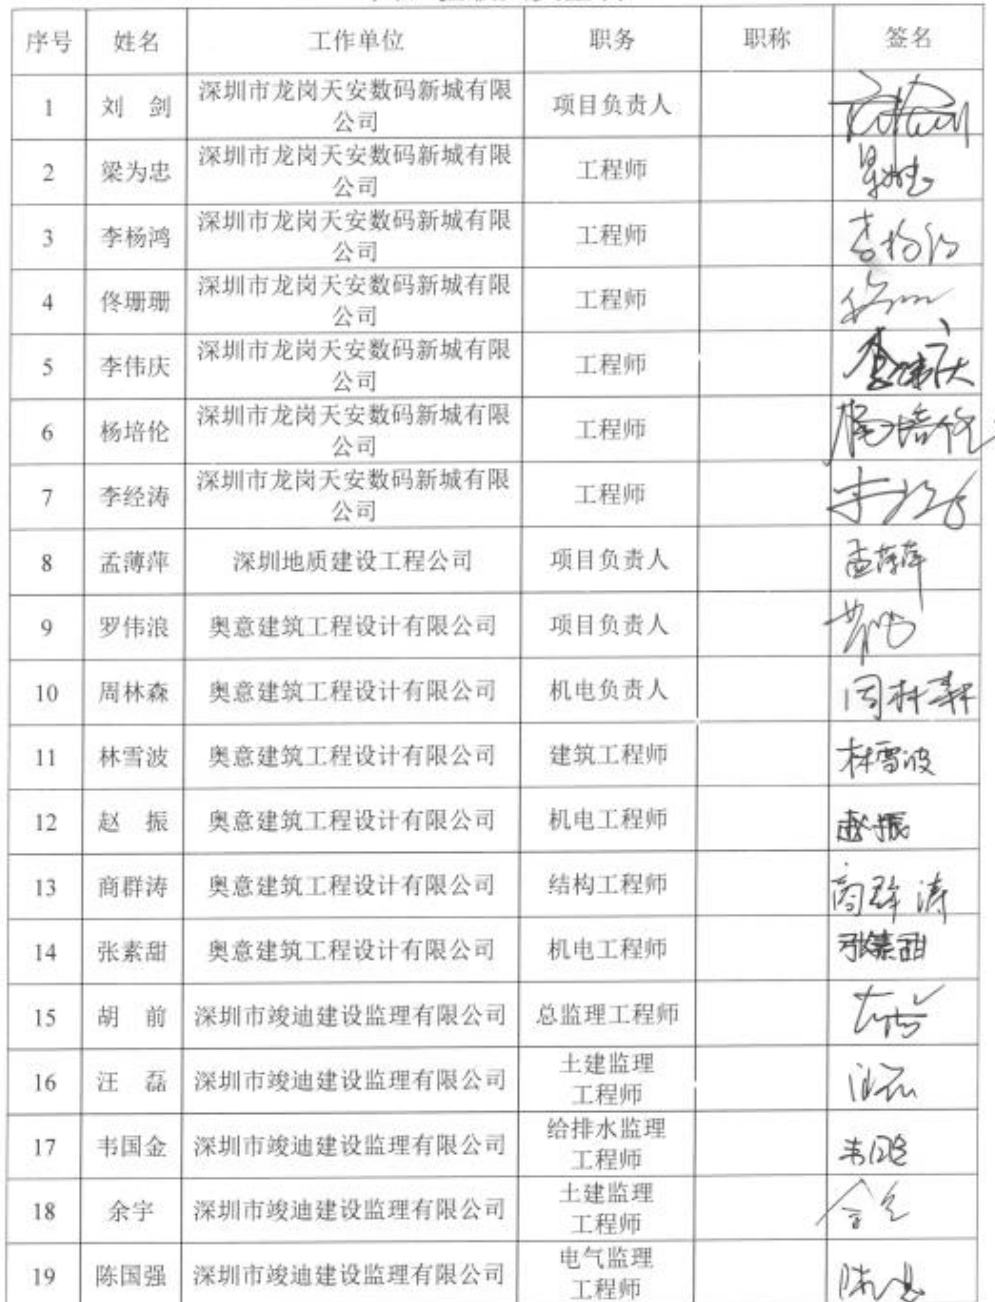 序号 姓名 工作单位 职务 职称 签名
1 刘 剑 深圳市龙岗天安数码新城有限 项目负责人
公司
2 梁为忠 深圳市龙岗天安数码新城有限 工程师
公司
3 李杨鸿 深圳市龙岗天安数码新城有限 工程师
公司
4 佟珊珊 深圳市龙岗天安数码新城有限 工程师
公司
5 李伟庆 深圳市龙岗天安数码新城有限 工程师 李伟庆
公司
6 杨培伦 深圳市龙岗天安数码新城有限 工程师 杨培伦
公司
7 李经涛 深圳市龙岗天安数码新城有限 工程师
公司
8 孟薄萍 深圳地质建设工程公司 项目负责人 孟薄萍
9 罗伟浪 奥意建筑工程设计有限公司 项目负责人
10 周林森 奥意建筑工程设计有限公司 机电负责人 周林森
11 林雪波 奥意建筑工程设计有限公司 建筑工程师 林雪波
12 赵 振 奥意建筑工程设计有限公司 机电工程师 赵振
13 商群涛 奥意建筑工程设计有限公司 结构工程师 商群涛
14 张素甜 奥意建筑工程设计有限公司 机电工程师 张素甜
15 胡 前 深圳市竣迪建设监理有限公司 总监理工程师
16 汪 磊 深圳市竣迪建设监理有限公司 土建监理
工程师
17 韦国金 深圳市竣迪建设监理有限公司 给排水监理
工程师
18 余宇 深圳市竣迪建设监理有限公司 土建监理
工程师
19 陈国强 深圳市竣迪建设监理有限公司 电气监理
工程师